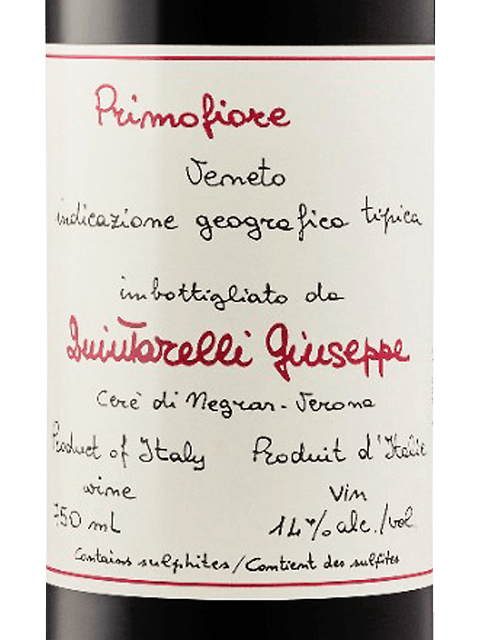 Primofiore
Veneto
indicazione geografica tipica
imbottigliato da
Quintarelli Giuseppe
Cerè di Negrar - Verona
Product of Italy Produit d'Italie
wine Vin
750 mL 14% alc./vol.
Contains sulphites / Contient des sulfites